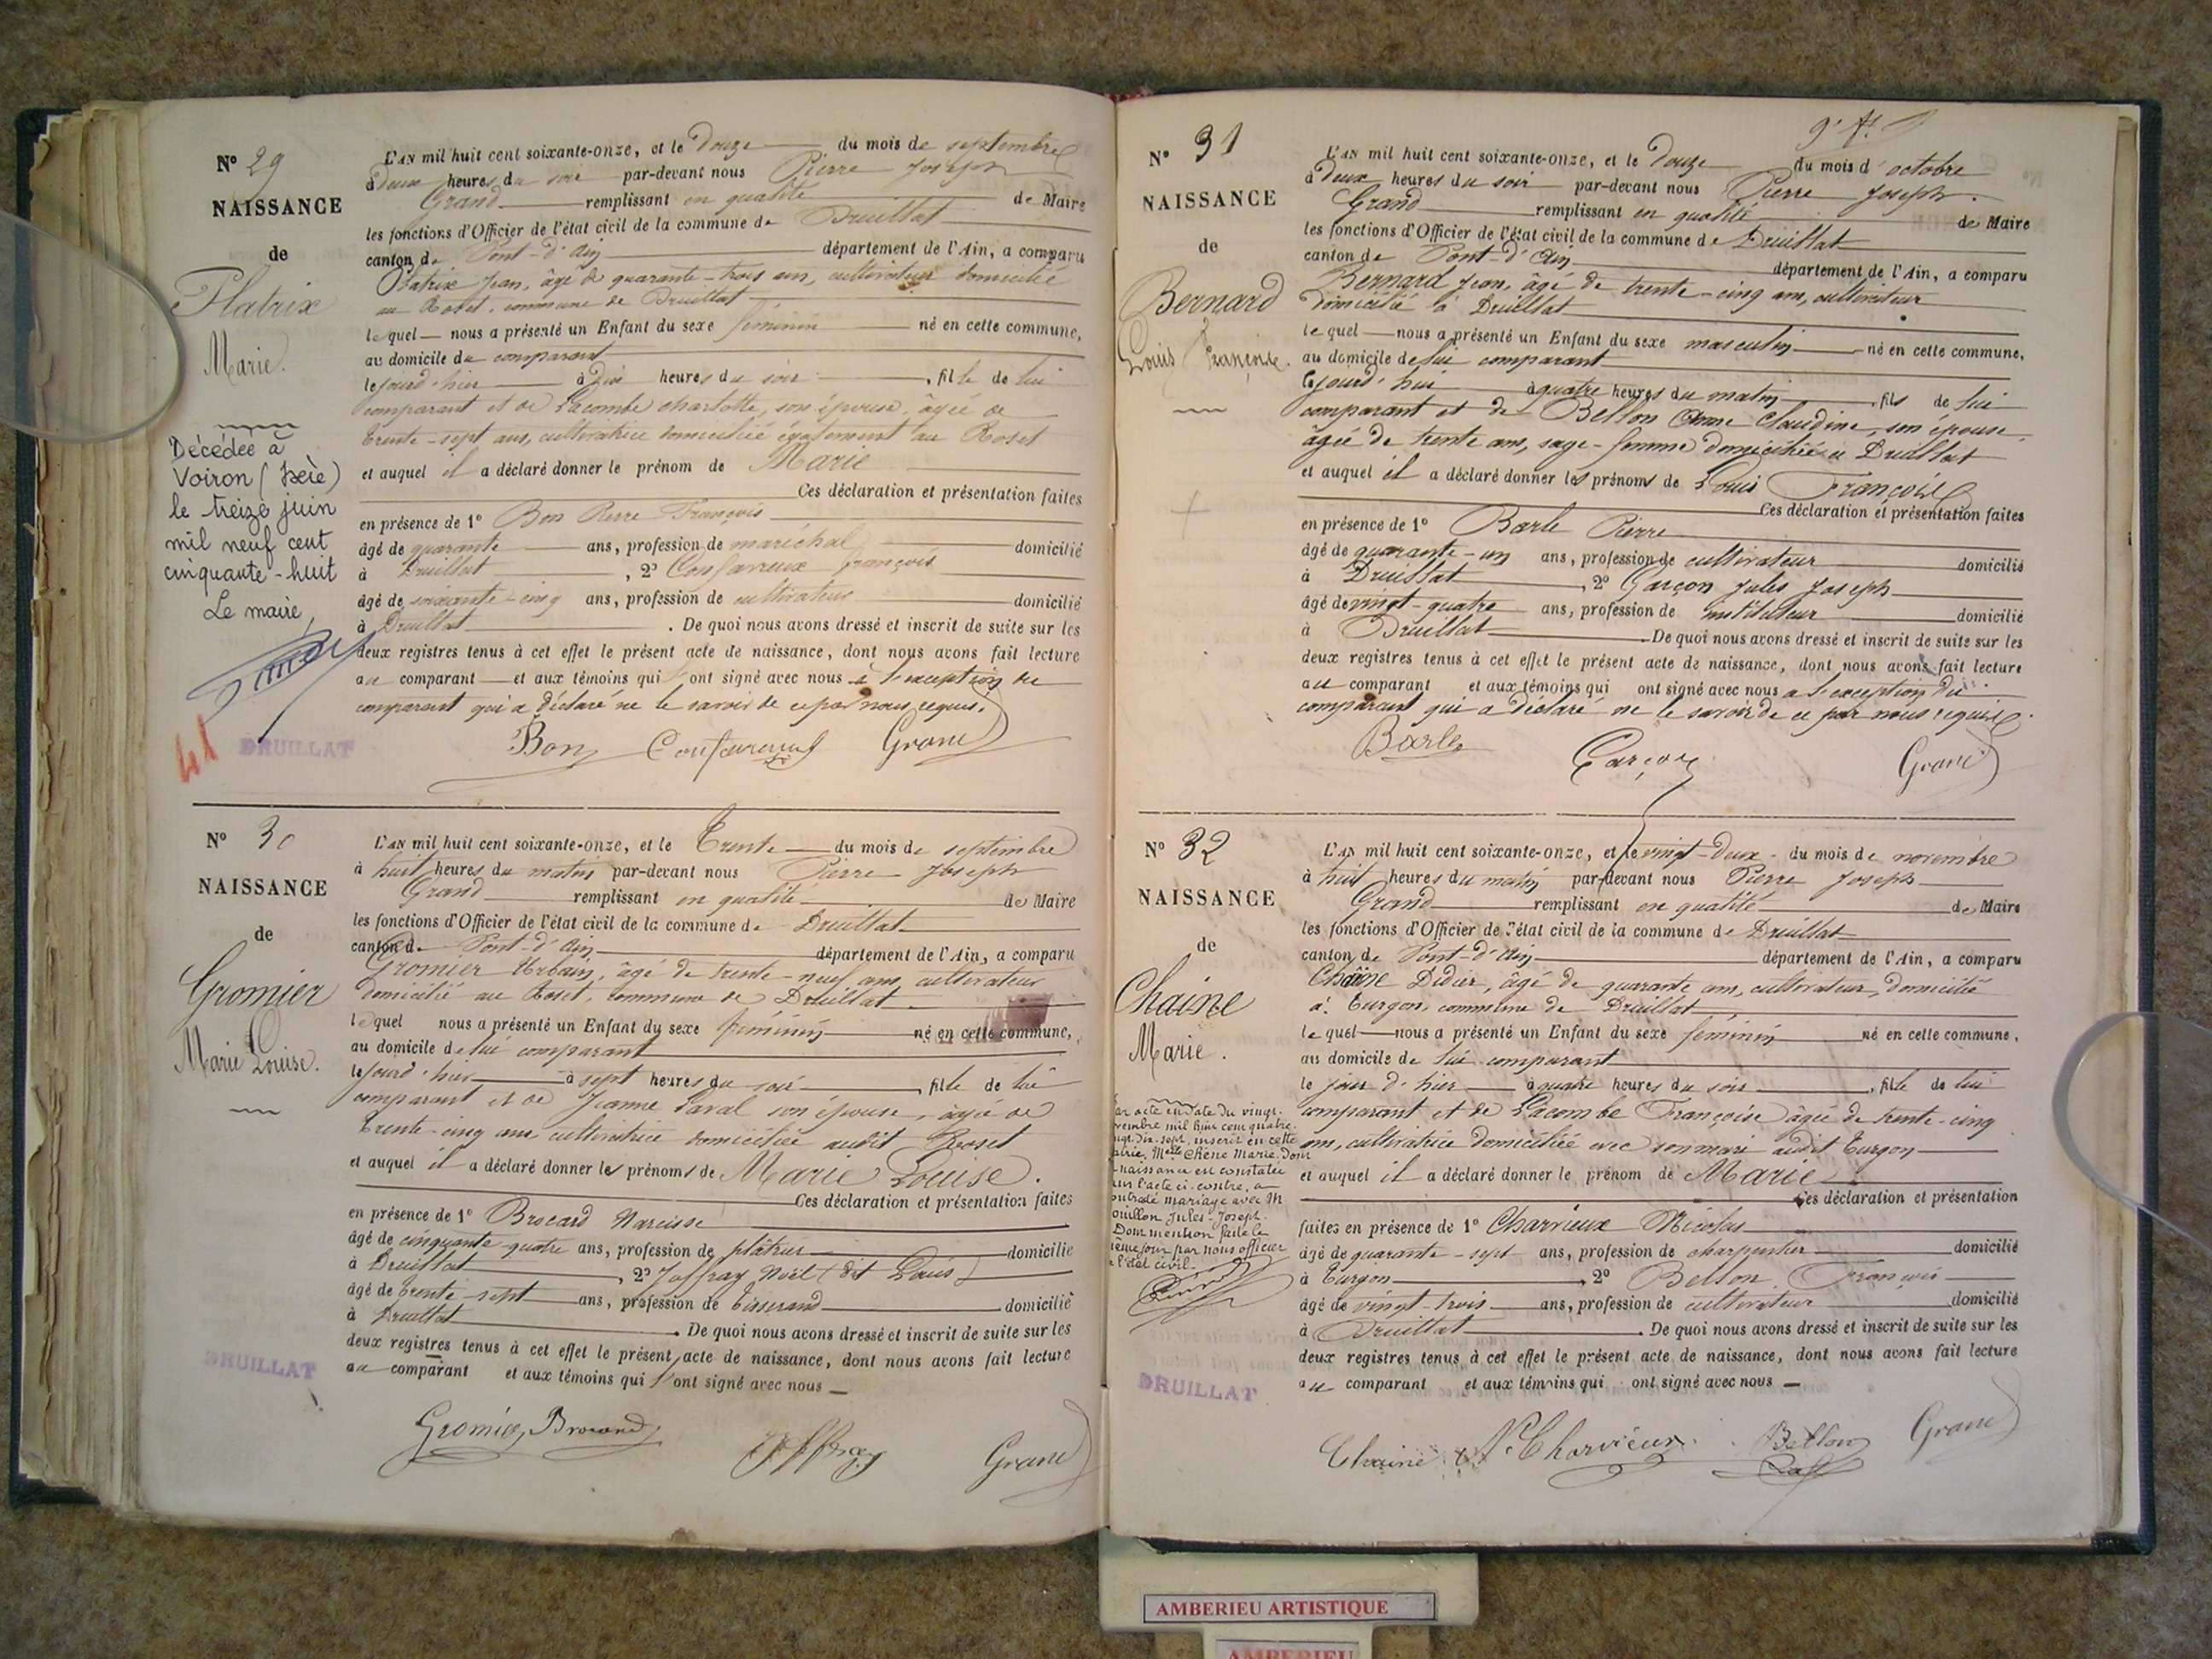 N° 29
NAISSANCE
de
Platrix
Marie.
Décédée à
Voiron (Isère)
le treize juin
mil neuf cent
cinquante-huit
Le maire,
41
DRUILLAT
L'AN mil huit cent soixante-onze, et le Douze du mois de septembre
à Deux heures du soir par-devant nous Pierre Joseph
Grand remplissant en qualité de Maire
les fonctions d'Officier de l'état civil de la commune de Druillat
canton de Pont-d'Ain département de l'Ain, a comparu
Platrix Jean, âgé de quarante-trois ans, cultivateur domicilié
au Roset, commune de Druillat
lequel nous a présenté un Enfant du sexe féminin né en cette commune,
au domicile du comparant
le jourd'hier à Dix heures du soir, fille de lui
comparant et de Lacombe charlotte, son épouse, âgée de
trente-sept ans, cultivatrice domiciliée également au Roset
et auquel il a déclaré donner le prénom de Marie
Ces déclaration et présentation faites
en présence de 1° Bon Pierre François
âgé de quarante ans, profession de maréchal domicilié
à Druillat, 2° Confavreux françois
âgé de soixante-cinq ans, profession de cultivateur domicilié
à Druillat. De quoi nous avons dressé et inscrit de suite sur les
deux registres tenus à cet effet le présent acte de naissance, dont nous avons fait lecture
au comparant et aux témoins qui ont signé avec nous à l'exception du
comparant qui a déclaré ne le savoir de ce par nous requis.
Bon Confavreux Grand
N° 30
NAISSANCE
de
Gromier
Marie Louise.
DRUILLAT
L'AN mil huit cent soixante-onze, et le Trente du mois de septembre
à huit heures du matin par-devant nous Pierre Joseph
Grand remplissant en qualité de Maire
les fonctions d'Officier de l'état civil de la commune de Druillat
canton de Pont-d'Ain département de l'Ain, a comparu
Gromier Urbain, âgé de trente-neuf ans cultivateur
domicilié au Roset, commune de Druillat
lequel nous a présenté un Enfant du sexe féminin né en cette commune,
au domicile de lui comparant
le jourd'hier à sept heures du soir, fille de lui
comparant et de Jeanne Laval son épouse, âgée de
trente-cinq ans, cultivatrice domiciliée audit Roset
et auquel il a déclaré donner les prénoms de Marie Louise.
Ces déclaration et présentation faites
en présence de 1° Brocard Narcisse
âgé de cinquante-quatre ans, profession de plâtrier domicilié
à Druillat, 2° Joffray Noël (dit Louis)
âgé de trente-sept ans, profession de tisserand domicilié
à Druillat. De quoi nous avons dressé et inscrit de suite sur les
deux registres tenus à cet effet le présent acte de naissance, dont nous avons fait lecture
au comparant et aux témoins qui ont signé avec nous
Gromier Brocard Joffray Grand
N° 31
NAISSANCE
de
Bernard
Louis Françoise.
L'AN mil huit cent soixante-onze, et le Douze du mois d'octobre
à Deux heures du soir par-devant nous Pierre Joseph
Grand remplissant en qualité de Maire
les fonctions d'Officier de l'état civil de la commune de Druillat
canton de Pont-d'Ain département de l'Ain, a comparu
Bernard Jean, âgé de trente-cinq ans, cultivateur
domicilié à Druillat
lequel nous a présenté un Enfant du sexe masculin né en cette commune,
au domicile de lui comparant
le jourd'hui à quatre heures du matin, fils de lui
comparant et de Bellon Anne Claudine, son épouse
âgée de trente ans, sage-femme domiciliée à Druillat
et auquel il a déclaré donner les prénoms de Louis François
Ces déclaration et présentation faites
en présence de 1° Barle Pierre
âgé de quarante-un ans, profession de cultivateur domicilié
à Druillat, 2° Garçon Jules Joseph
âgé de vingt-quatre ans, profession de instituteur domicilié
à Druillat. De quoi nous avons dressé et inscrit de suite sur les
deux registres tenus à cet effet le présent acte de naissance, dont nous avons fait lecture
au comparant et aux témoins qui ont signé avec nous à l'exception du
comparant qui a déclaré ne le savoir de ce par nous requis.
Barle Garçon Grand
N° 32
NAISSANCE
de
Chaine
Marie.
acte en date du vingt-
vembre mil huit cent quatre-
ngt-Dix-sept, inscrit en cette
airie, Melle Chêne Marie, dont
naissance est constatée
l'acte ci-contre, a
ontracté mariage avec M
ouillon Jules-Joseph.
Dont mention faite le
même jour par nous officier
l'état civil.
DRUILLAT
L'AN mil huit cent soixante-onze, et le vingt-Deux du mois de novembre
à huit heures du matin par-devant nous Pierre Joseph
Grand remplissant en qualité de Maire
les fonctions d'Officier de l'état civil de la commune de Druillat
canton de Pont-d'Ain département de l'Ain, a comparu
Chaine Didier, âgé de quarante ans, cultivateur, domicilié
à Turgon, commune de Druillat
lequel nous a présenté un Enfant du sexe féminin né en cette commune,
au domicile de lui comparant
le jour d'hier à quatre heures du soir, fille de lui
comparant et de Lacombe Françoise âgée de trente-cinq
ans, cultivatrice domiciliée avec son mari audit Turgon
et auquel il a déclaré donner le prénom de Marie
Ces déclaration et présentation
faites en présence de 1° Charvieux Nicolas
âgé de quarante-sept ans, profession de charpentier domicilié
à Turgon, 2° Bellon François
âgé de vingt-trois ans, profession de cultivateur domicilié
à Druillat. De quoi nous avons dressé et inscrit de suite sur les
deux registres tenus à cet effet le présent acte de naissance, dont nous avons fait lecture
au comparant et aux témoins qui ont signé avec nous
Chaine N. Charvieux Bellon Grand
AMBERIEU ARTISTIQUE
AMBERIEU